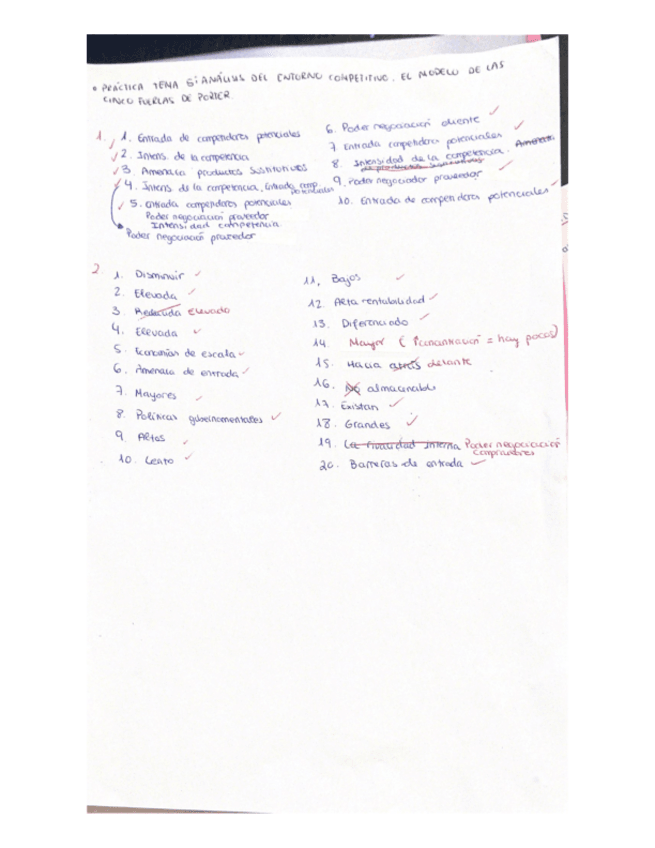 • PRÁCTICA TEMA 5: ANÁLISIS DEL ENTORNO COMPETITIVO. EL MODELO DE LAS
CINCO FUERZAS DE PORTER.
1.
1. Entrada de competidores potenciales
2. Intens. de la competencia
3. Amenaza productos sustitutivos
4. Intens de la competencia, Entrada comp. potenciales
5. entrada competidores potenciales
Poder negociación proveedor
Intensidad competencia
Poder negociación proveedor
6. Poder negociación cliente
7. Entrada competidores potenciales
8. Intensidad de la competencia. Amenaza
de productos sustitutivos
9. Poder negociador proveedor
10. Entrada de competidores potenciales
2.
1. Disminuir
2. Elevada
3. Reducida Elevado
4. Elevada
5. Economías de escala
6. Amenaza de entrada
7. Mayores
8. Políticas gubernamentales
9. Altos
10. Lento
11. Bajos
12. Alta rentabilidad
13. Diferenciado
14. Mayor (↑concentración = hay pocos)
15. Hacia atrás delante
16. No almacenable
17. Existan
18. Grandes
19. La rivalidad interna Poder negociación
compradores
20. Barreras de entrada